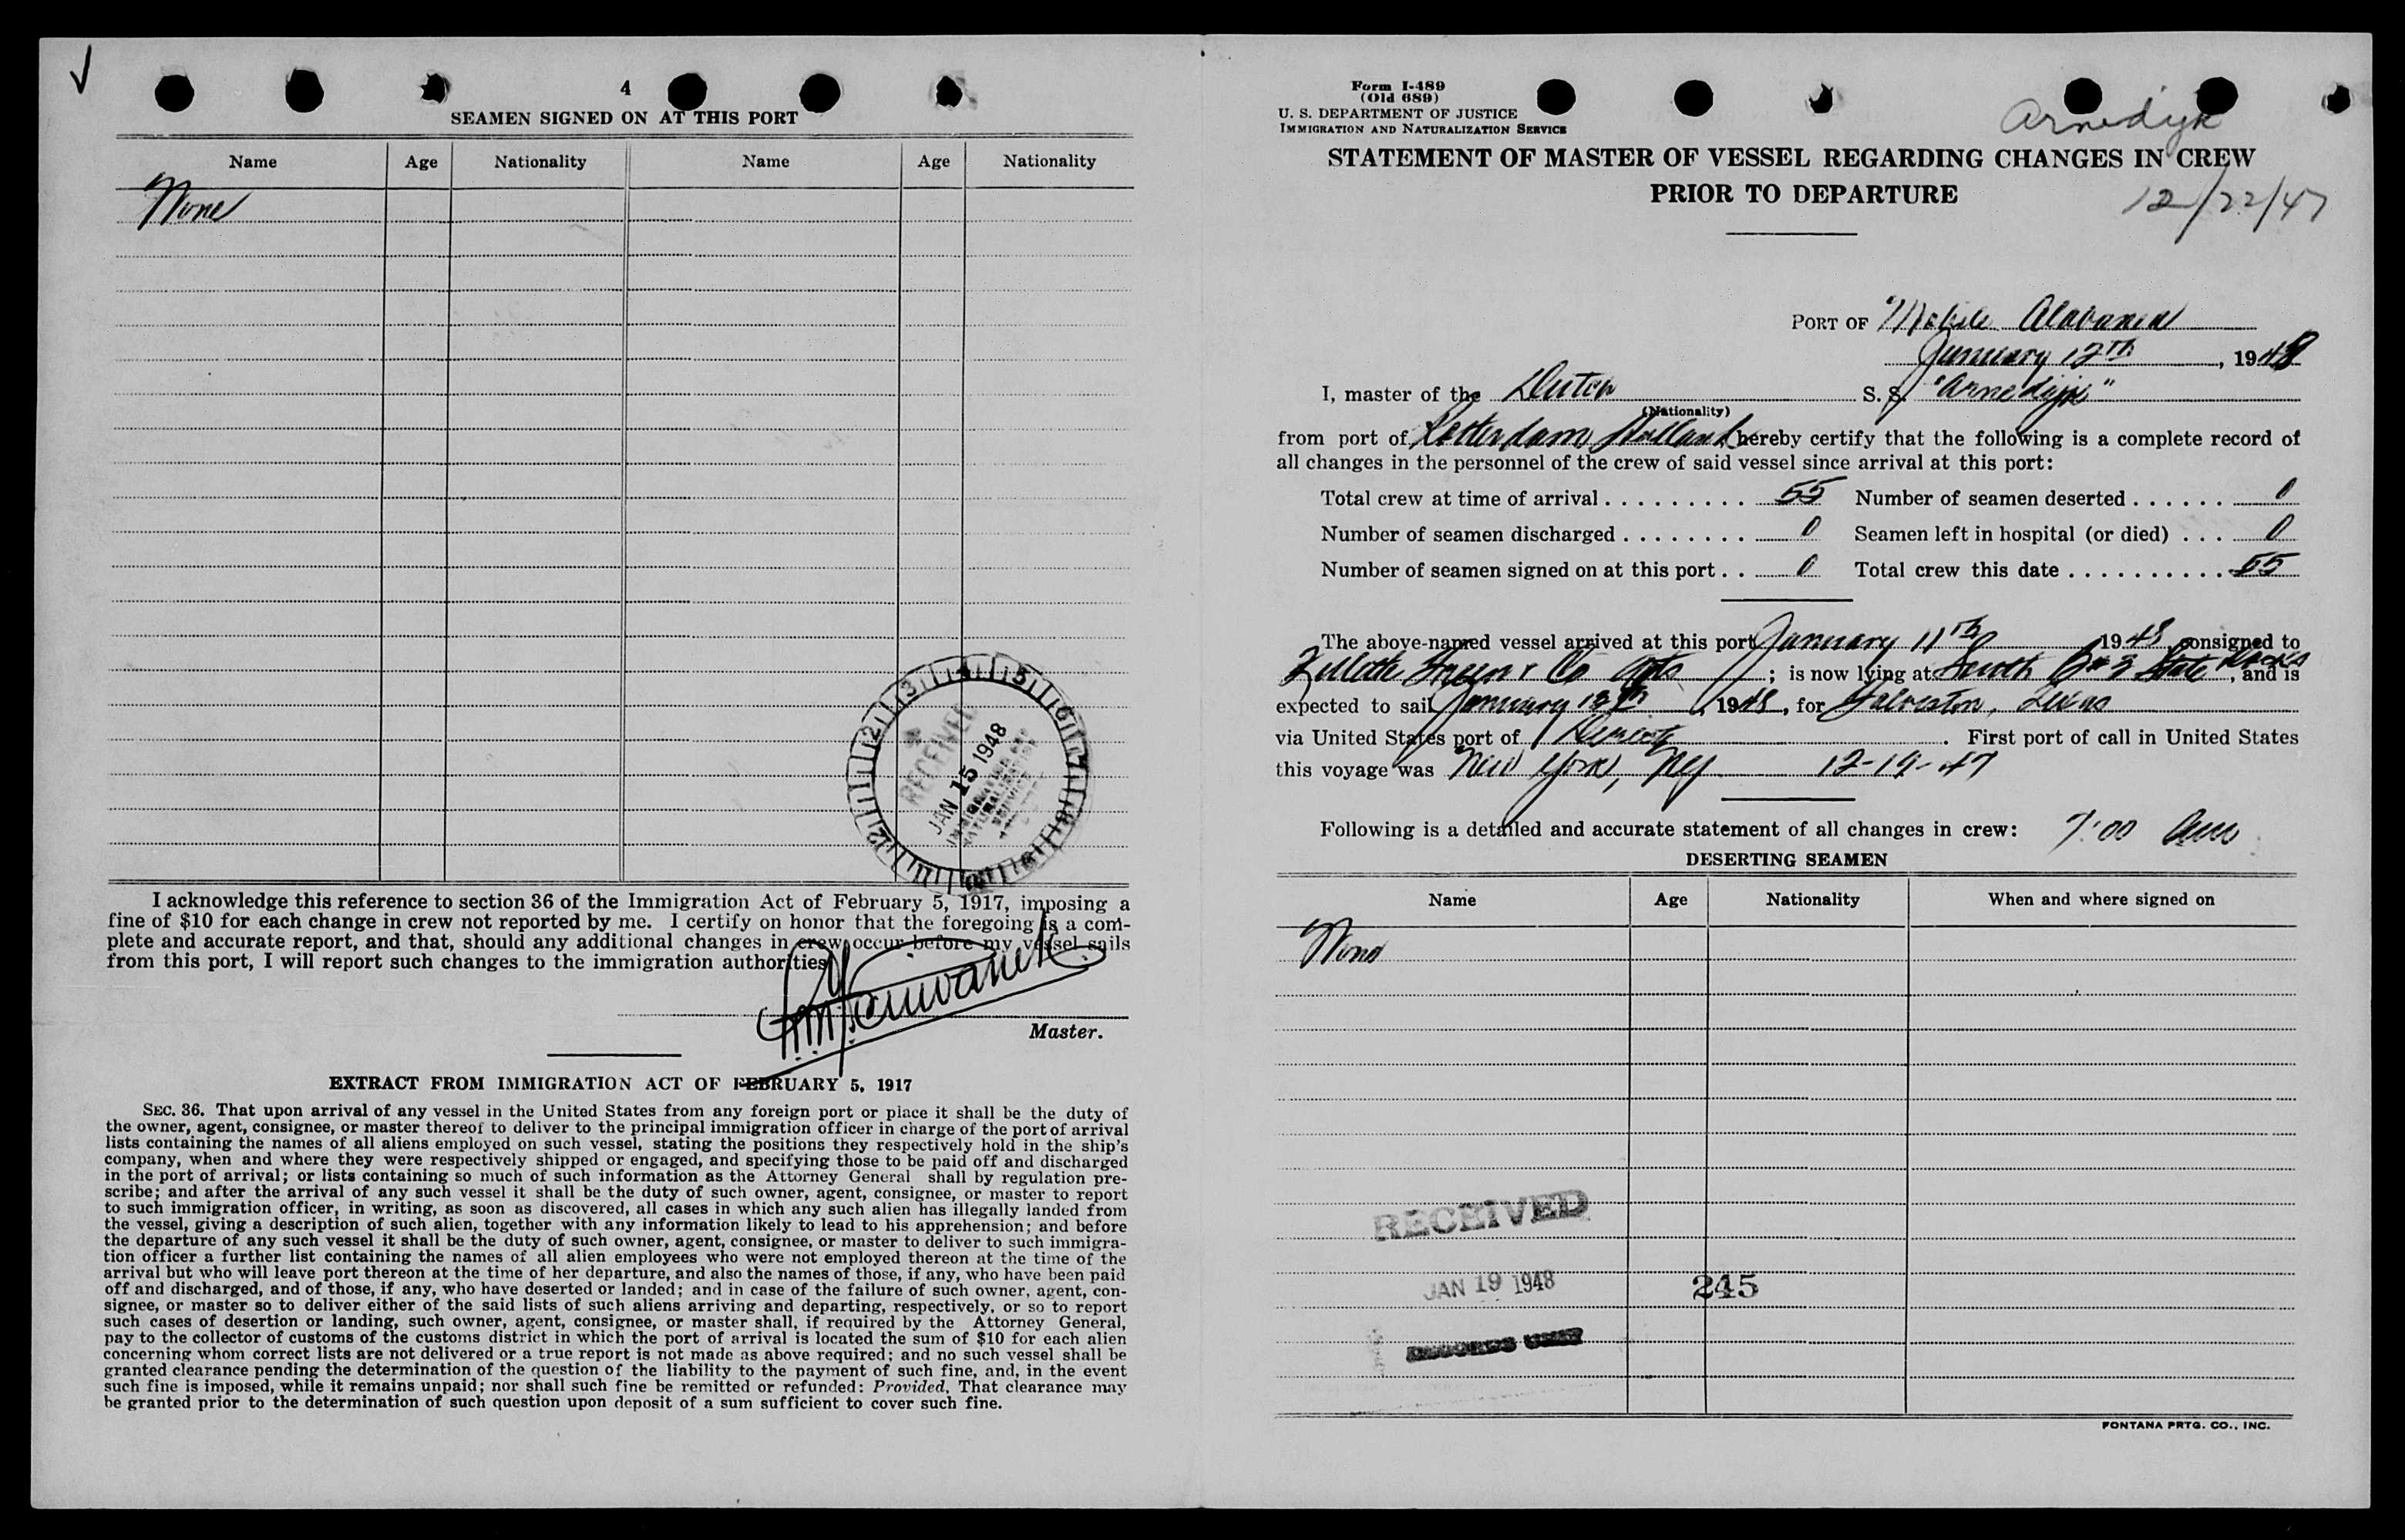 4
SEAMEN SIGNED ON AT THIS PORT
Name Age Nationality Name Age Nationality
None
RECEIVED
JAN 15 1948
I acknowledge this reference to section 36 of the Immigration Act of February 5, 1917, imposing a
fine of $10 for each change in crew not reported by me. I certify on honor that the foregoing is a com-
plete and accurate report, and that, should any additional changes in crew occur before my vessel sails
from this port, I will report such changes to the immigration authorities.
Master.
EXTRACT FROM IMMIGRATION ACT OF FEBRUARY 5, 1917
SEC. 36. That upon arrival of any vessel in the United States from any foreign port or place it shall be the duty of
the owner, agent, consignee, or master thereof to deliver to the principal immigration officer in charge of the port of arrival
lists containing the names of all aliens employed on such vessel, stating the positions they respectively hold in the ship's
company, when and where they were respectively shipped or engaged, and specifying those to be paid off and discharged
in the port of arrival; or lists containing so much of such information as the Attorney General shall by regulation pre-
scribe; and after the arrival of any such vessel it shall be the duty of such owner, agent, consignee, or master to report
to such immigration officer, in writing, as soon as discovered, all cases in which any such alien has illegally landed from
the vessel, giving a description of such alien, together with any information likely to lead to his apprehension; and before
the departure of any such vessel it shall be the duty of such owner, agent, consignee, or master to deliver to such immigra-
tion officer a further list containing the names of all alien employees who were not employed thereon at the time of the
arrival but who will leave port thereon at the time of her departure, and also the names of those, if any, who have been paid
off and discharged, and of those, if any, who have deserted or landed; and in case of the failure of such owner, agent, con-
signee, or master so to deliver either of the said lists of such aliens arriving and departing, respectively, or so to report
such cases of desertion or landing, such owner, agent, consignee, or master shall, if required by the Attorney General,
pay to the collector of customs of the customs district in which the port of arrival is located the sum of $10 for each alien
concerning whom correct lists are not delivered or a true report is not made as above required; and no such vessel shall be
granted clearance pending the determination of the question of the liability to the payment of such fine, and, in the event
such fine is imposed, while it remains unpaid; nor shall such fine be remitted or refunded: Provided, That clearance may
be granted prior to the determination of such question upon deposit of a sum sufficient to cover such fine.
Form I-489
(Old 689)
U. S. DEPARTMENT OF JUSTICE
IMMIGRATION AND NATURALIZATION SERVICE
Arnedijk
STATEMENT OF MASTER OF VESSEL REGARDING CHANGES IN CREW
PRIOR TO DEPARTURE
12/22/47
PORT OF Mobile Alabama
January 12th, 1948
I, master of the Dutch S. S. "Arnedijk"
(Nationality)
from port of Rotterdam Holland hereby certify that the following is a complete record of
all changes in the personnel of the crew of said vessel since arrival at this port:
Total crew at time of arrival . . . . . . . . . . 55 Number of seamen deserted . . . . . . 0
Number of seamen discharged . . . . . . . . 0 Seamen left in hospital (or died) . . . 0
Number of seamen signed on at this port . . 0 Total crew this date . . . . . . . . . . 55
The above-named vessel arrived at this port January 11th 1948 consigned to
& Co ; is now lying at State Docks, and is
expected to sail January , 1948, for Galveston, Texas
via United States port of . First port of call in United States
this voyage was New York, NY 12-19-47
Following is a detailed and accurate statement of all changes in crew: 7:00
DESERTING SEAMEN
Name Age Nationality When and where signed on
None
RECEIVED
JAN 19 1948 245
RECORDS UNIT
FONTANA PRTG. CO., INC.